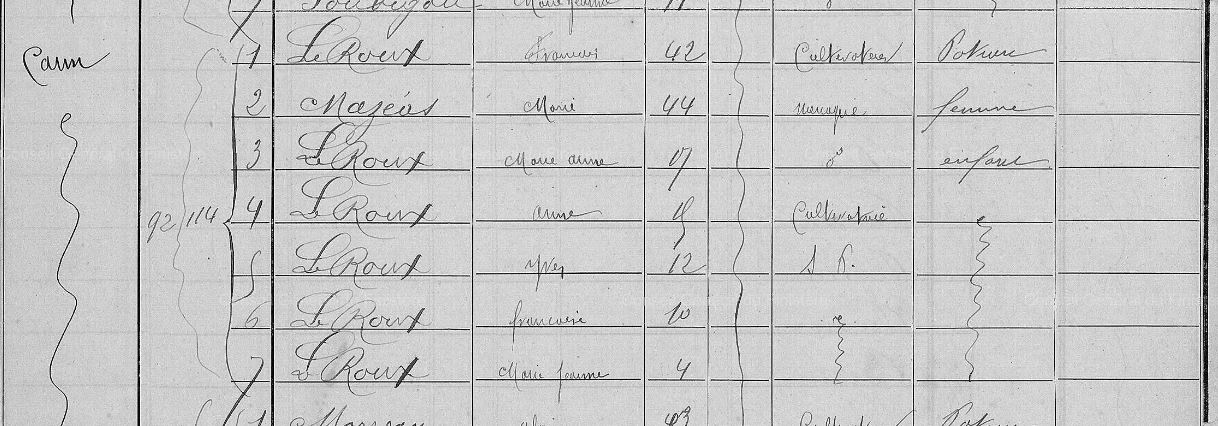 7 Marie Jeanne
Carm 1 Le Roux Francois 42 Cultivateur Patron
2 Mazéas Marie 44 menagere femme
3 Le Roux Marie anne 17 d° enfant
92 114 4 Le Roux anne 15 Cultivatrice
5 Le Roux Yves 12 S P.
6 Le Roux francoise 10
7 Le Roux Marie jeanne 4
1 43 Patron